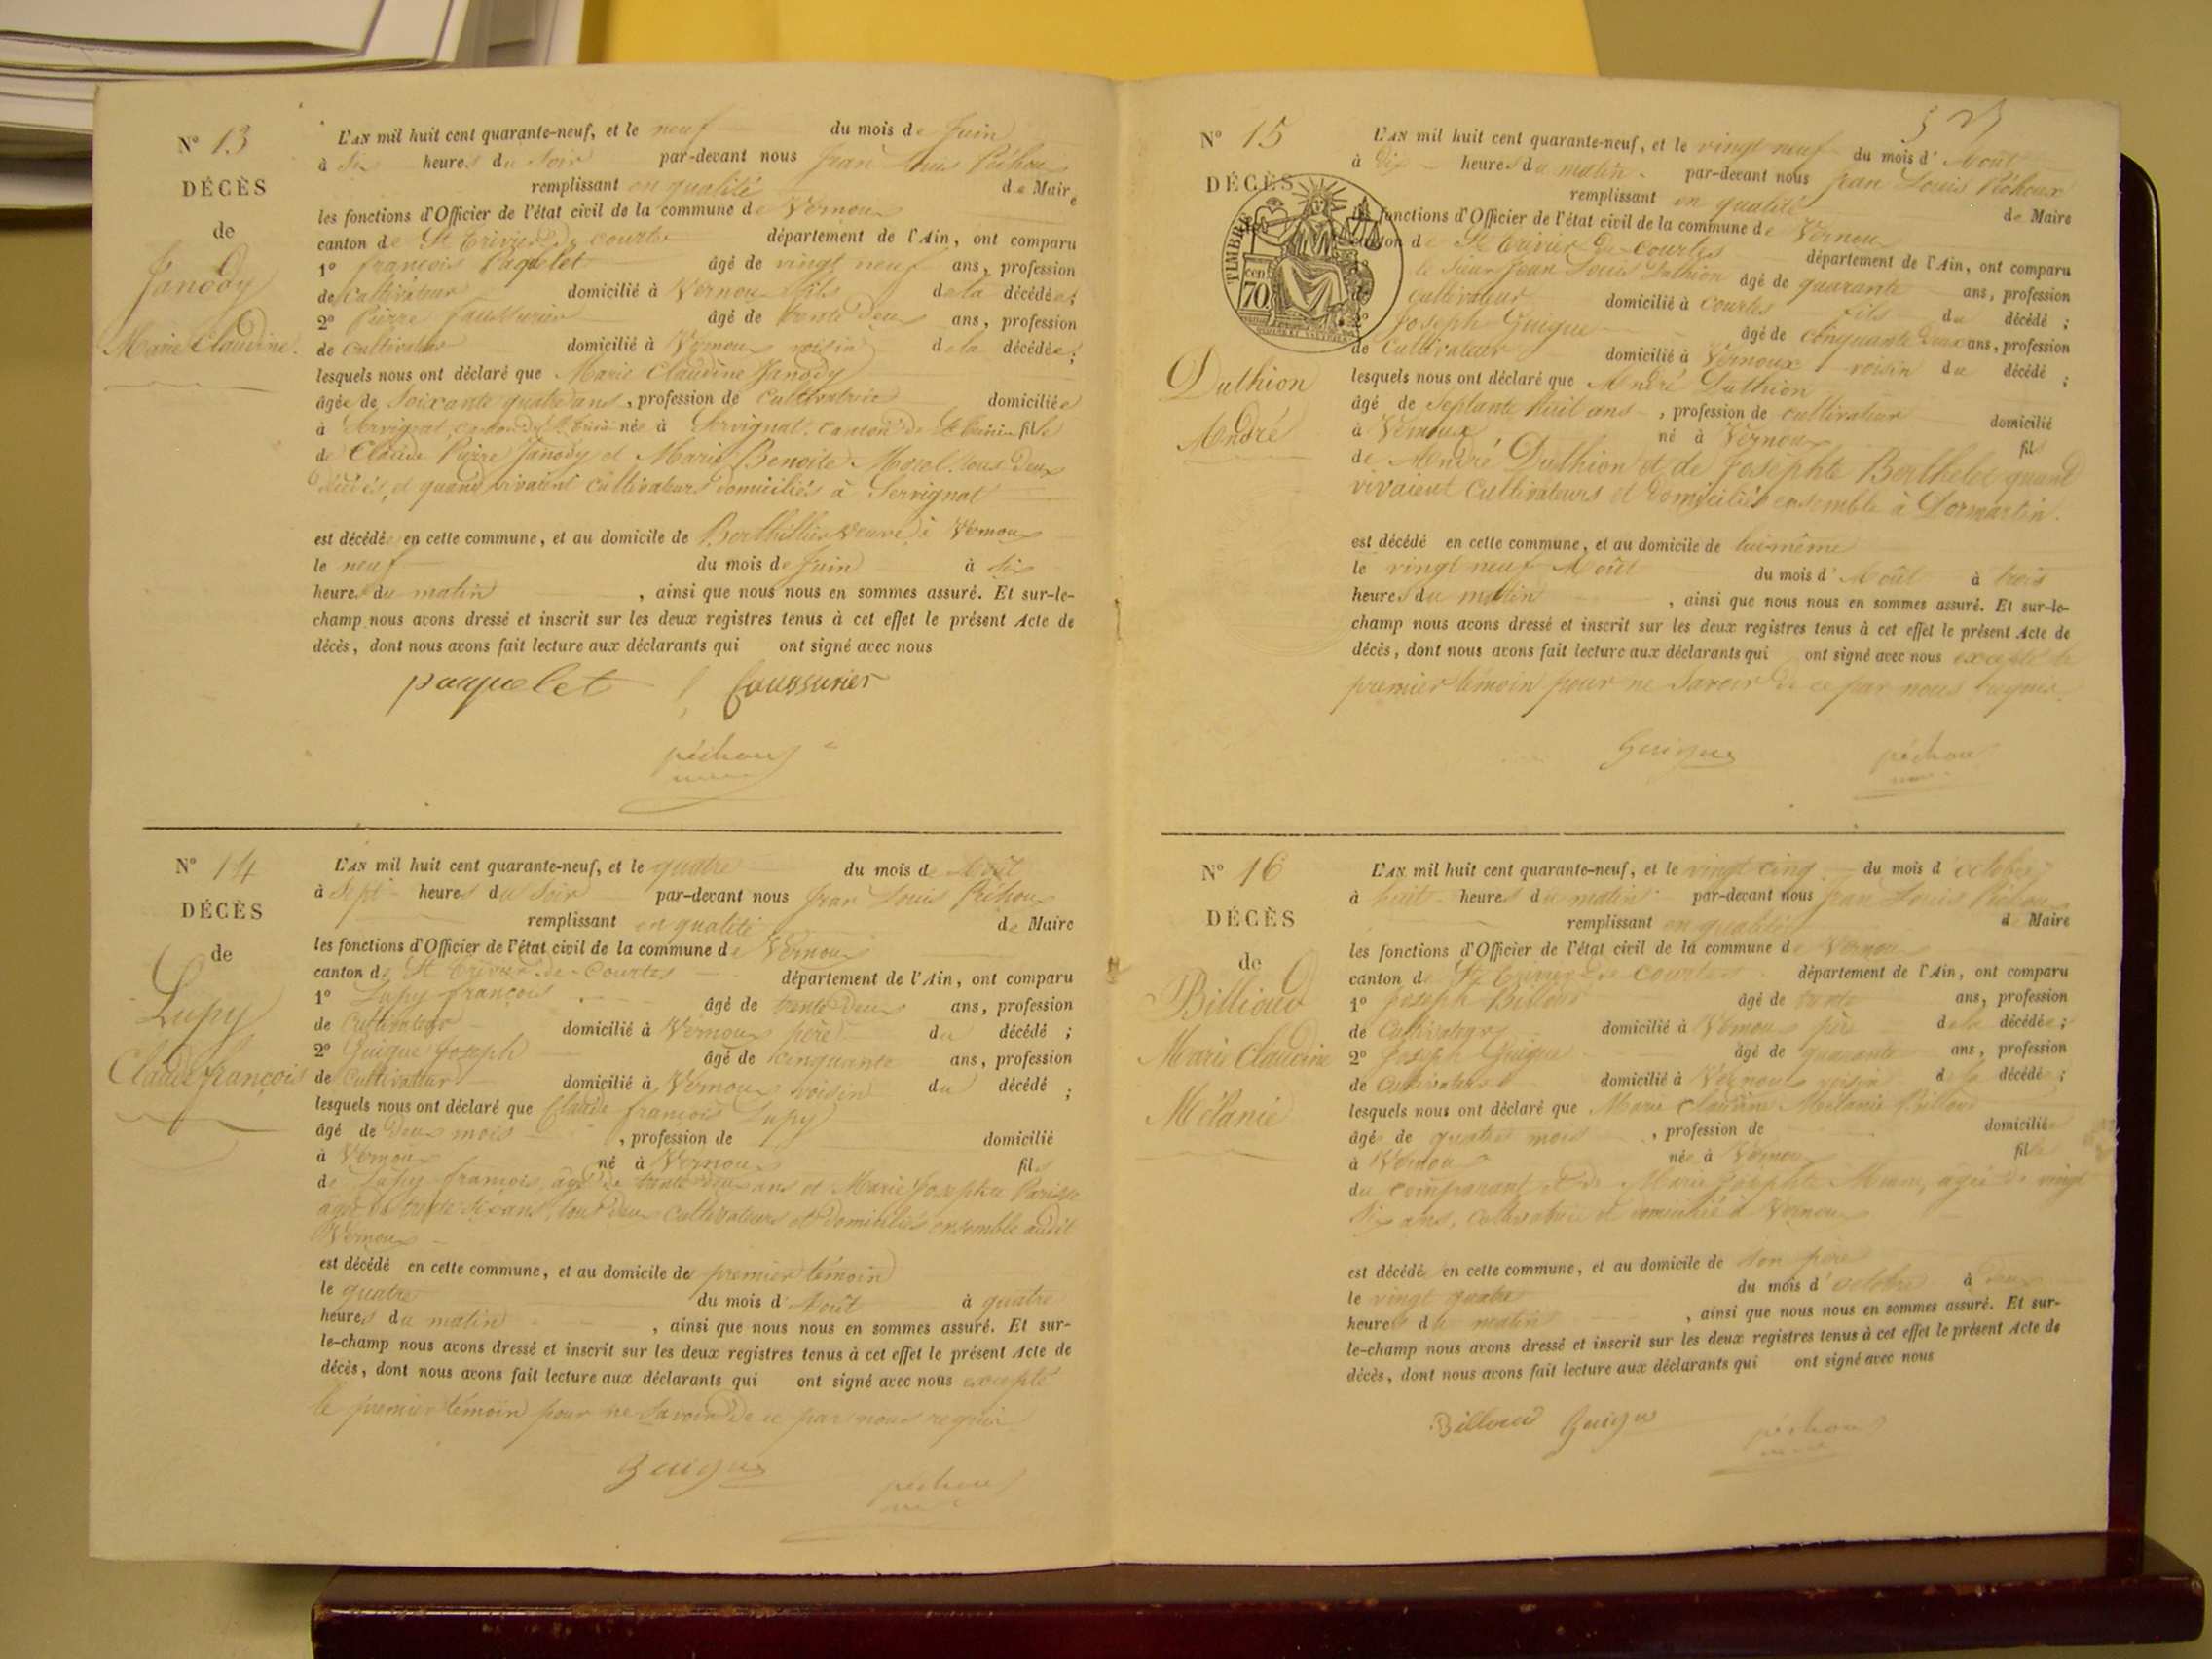 N° 13
DÉCÈS
de
Janody
Marie Claudine.
L'AN mil huit cent quarante-neuf, et le neuf du mois de Juin
à Six heures du Soir par-devant nous Jean Louis Péchoux
remplissant en qualité de Maire
les fonctions d'Officier de l'état civil de la commune de Vernoux
canton de St Trivier de courtes département de l'Ain, ont comparu
1° françois Paquelet âgé de vingt neuf ans, profession
de Cultivateur domicilié à Vernoux fils de la décédée;
2° Pierre faussurier âgé de trente deux ans, profession
de Cultivateur domicilié à Vernoux voisin de la décédée;
lesquels nous ont déclaré que Marie Claudine Janody
âgée de Soixante quatre ans, profession de Cultivatrice domiciliée
à Servignat, canton de St née à Servignat, canton de St fille
de Claude Pierre Janody et Marie Benoite Morel tous deux
décédés, et quand vivaient cultivateurs domiciliés à Servignat
est décédée en cette commune, et au domicile de Berthillier veuve à Vernoux
le neuf du mois de Juin à Six
heures du matin, ainsi que nous nous en sommes assuré. Et sur-le-
champ nous avons dressé et inscrit sur les deux registres tenus à cet effet le présent Acte de
décès, dont nous avons fait lecture aux déclarants qui ont signé avec nous
paquelet faussurier
péchoux
N° 14
DÉCÈS
de
Lupy
Claude françois
L'AN mil huit cent quarante-neuf, et le quatre du mois de Août
à Sept heures du Soir par-devant nous Jean Louis Péchoux
remplissant en qualité de Maire
les fonctions d'Officier de l'état civil de la commune de Vernoux
canton de St Trivier-de-Courtes département de l'Ain, ont comparu
1° Lupy françois âgé de trente deux ans, profession
de Cultivateur domicilié à Vernoux père du décédé;
2° Guigue Joseph âgé de cinquante ans, profession
de Cultivateur domicilié à Vernoux voisin du décédé;
lesquels nous ont déclaré que Claude françois Lupy
âgé de Deux mois, profession de domicilié
à Vernoux né à Vernoux fils
de Lupy françois, âgé de trente deux ans et Marie Josephte
âgée de trente six ans, tous deux Cultivateurs et domiciliés ensemble audit
Vernoux
est décédé en cette commune, et au domicile de premier témoin
le quatre du mois d'Août à quatre
heures du matin, ainsi que nous nous en sommes assuré. Et sur-
le-champ nous avons dressé et inscrit sur les deux registres tenus à cet effet le présent Acte de
décès, dont nous avons fait lecture aux déclarants qui ont signé avec nous excepté
le premier témoin pour ne Savoir de ce par nous requis
Guigue
péchoux
N° 15
DÉCÈS
TIMBRE
cen 70
Duthion
André
L'AN mil huit cent quarante-neuf, et le vingt neuf du mois d'Août
à Dix heures du matin par-devant nous Jean Louis Péchoux
remplissant en qualité de Maire
les fonctions d'Officier de l'état civil de la commune de Vernoux
canton de St Trivier de courtes département de l'Ain, ont comparu
le Sieur Jean Louis Duthion âgé de quarante ans, profession
cultivateur domicilié à Courtes fils du décédé;
2° Joseph Guigue âgé de cinquante deux ans, profession
de Cultivateur domicilié à Vernoux voisin du décédé;
lesquels nous ont déclaré que André Duthion
âgé de Septante huit ans, profession de cultivateur domicilié
à Vernoux né à Vernoux fils
de André Duthion et de Josephte Berthelet quand
vivaient Cultivateurs et domiciliés ensemble à Dormartin.
est décédé en cette commune, et au domicile de lui-même
le vingt neuf Août du mois d'Août à trois
heures du matin, ainsi que nous nous en sommes assuré. Et sur-le-
champ nous avons dressé et inscrit sur les deux registres tenus à cet effet le présent Acte de
décès, dont nous avons fait lecture aux déclarants qui ont signé avec nous excepté le
premier témoin pour ne Savoir de ce par nous requis.
Guigue péchoux
N° 16
DÉCÈS
de
Billioud
Marie Claudine
Mélanie
L'AN mil huit cent quarante-neuf, et le vingt cinq du mois d'octobre
à huit heures du matin par-devant nous Jean Louis Péchoux
remplissant en qualité de Maire
les fonctions d'Officier de l'état civil de la commune de Vernoux
canton de St Trivier de Courtes département de l'Ain, ont comparu
1° Joseph Billoud âgé de trente ans, profession
de Cultivateur domicilié à Vernoux père de la décédée;
2° Joseph Guigue âgé de quarante ans, profession
de Cultivateur domicilié à Vernoux voisin de la décédée;
lesquels nous ont déclaré que Marie Claudine Mélanie Billoud
âgée de quatre mois, profession de domiciliée
à Vernoux née à Vernoux fille
du comparant et de Marie Josephte agée de vingt
Six ans, cultivatrice et domiciliée à Vernoux
est décédée en cette commune, et au domicile de son père
le vingt quatre du mois d'octobre à deux
heures du matin, ainsi que nous nous en sommes assuré. Et sur-
le-champ nous avons dressé et inscrit sur les deux registres tenus à cet effet le présent Acte de
décès, dont nous avons fait lecture aux déclarants qui ont signé avec nous
Billoud Guigue péchoux